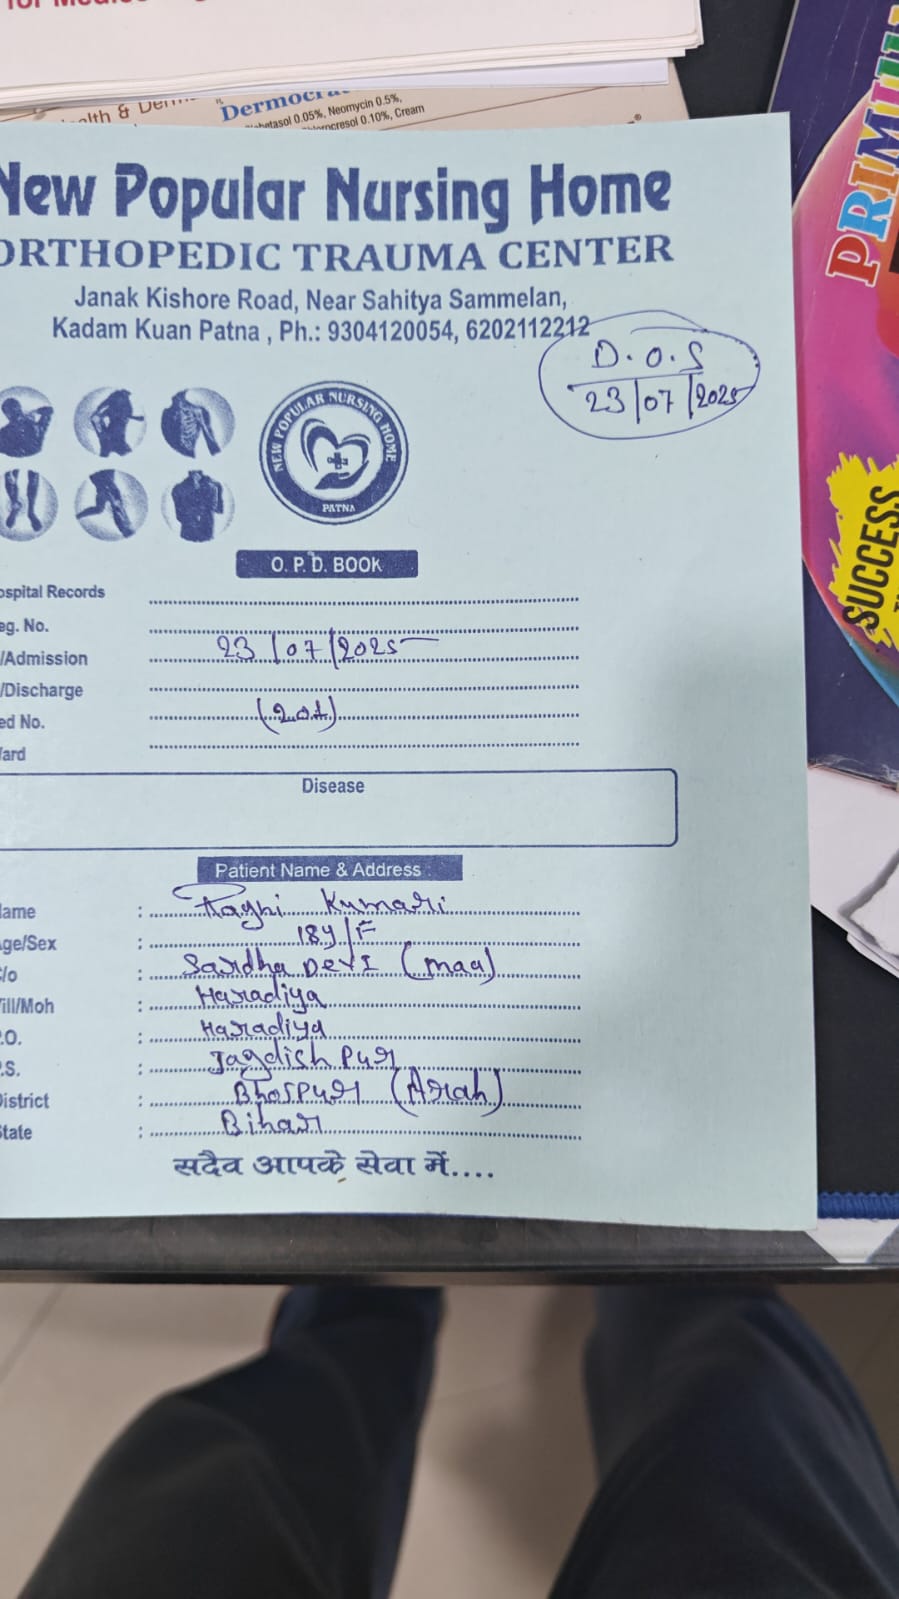 Dermocra
betasol 0.05%, Neomycin 0.5%,
ocresol 0.10%, Cream
New Popular Nursing Home
ORTHOPEDIC TRAUMA CENTER
Janak Kishore Road, Near Sahitya Sammelan,
Kadam Kuan Patna , Ph.: 9304120054, 6202112212
D.O.S
23/07/2025
NEW POPULAR NURSING HOME
PATNA
O. P. D. BOOK
ospital Records
eg. No.
/Admission 23/07/2025
/Discharge
ed No. (201)
ard
Disease
Patient Name & Address
ame : Kumari
ge/Sex : 18y/F
/o : Sardha DevI (maa)
ill/Moh : Haradiya
.O. : Haradiya
.S. : Jagdishpur
istrict : Bhojpur (Arah)
tate : Bihar
सदैव आपके सेवा में....
PRIMIU
SUCCESS